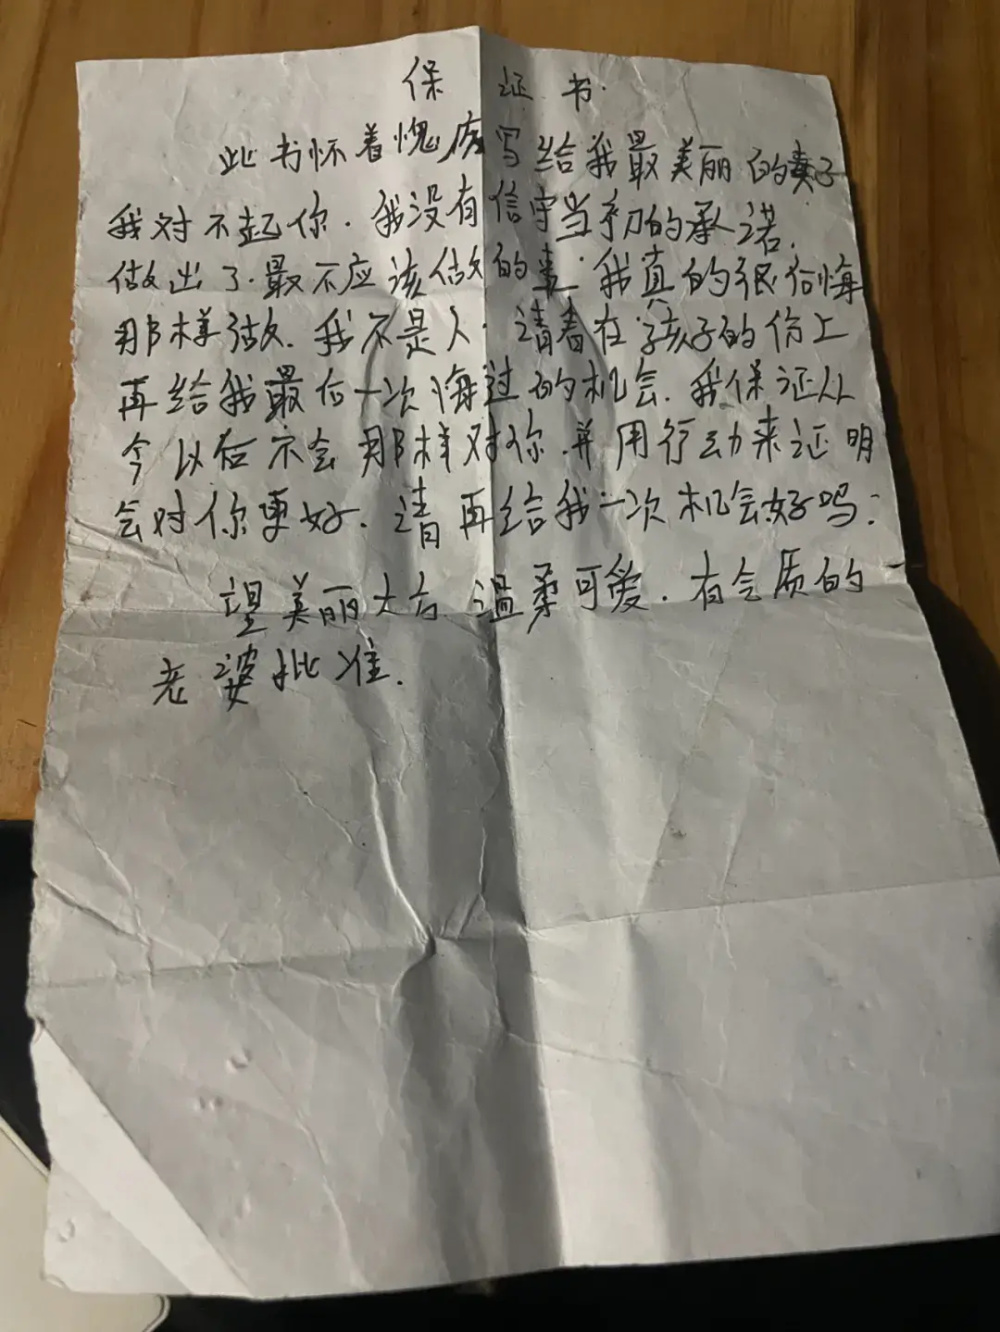 保证书
此书怀着愧疚写给我最美丽的妻子
我对不起你.我没有信守当初的承诺.
做出了.最不应该做的事.我真的很后悔
那样做.我不是人.请看在孩子的份上
再给我最后一次悔过的机会.我保证从
今以后不会那样对你.并用行动来证明
会对你更好.请再给我一次机会好吗:
望美丽大方 温柔可爱.有气质的
老婆批准.